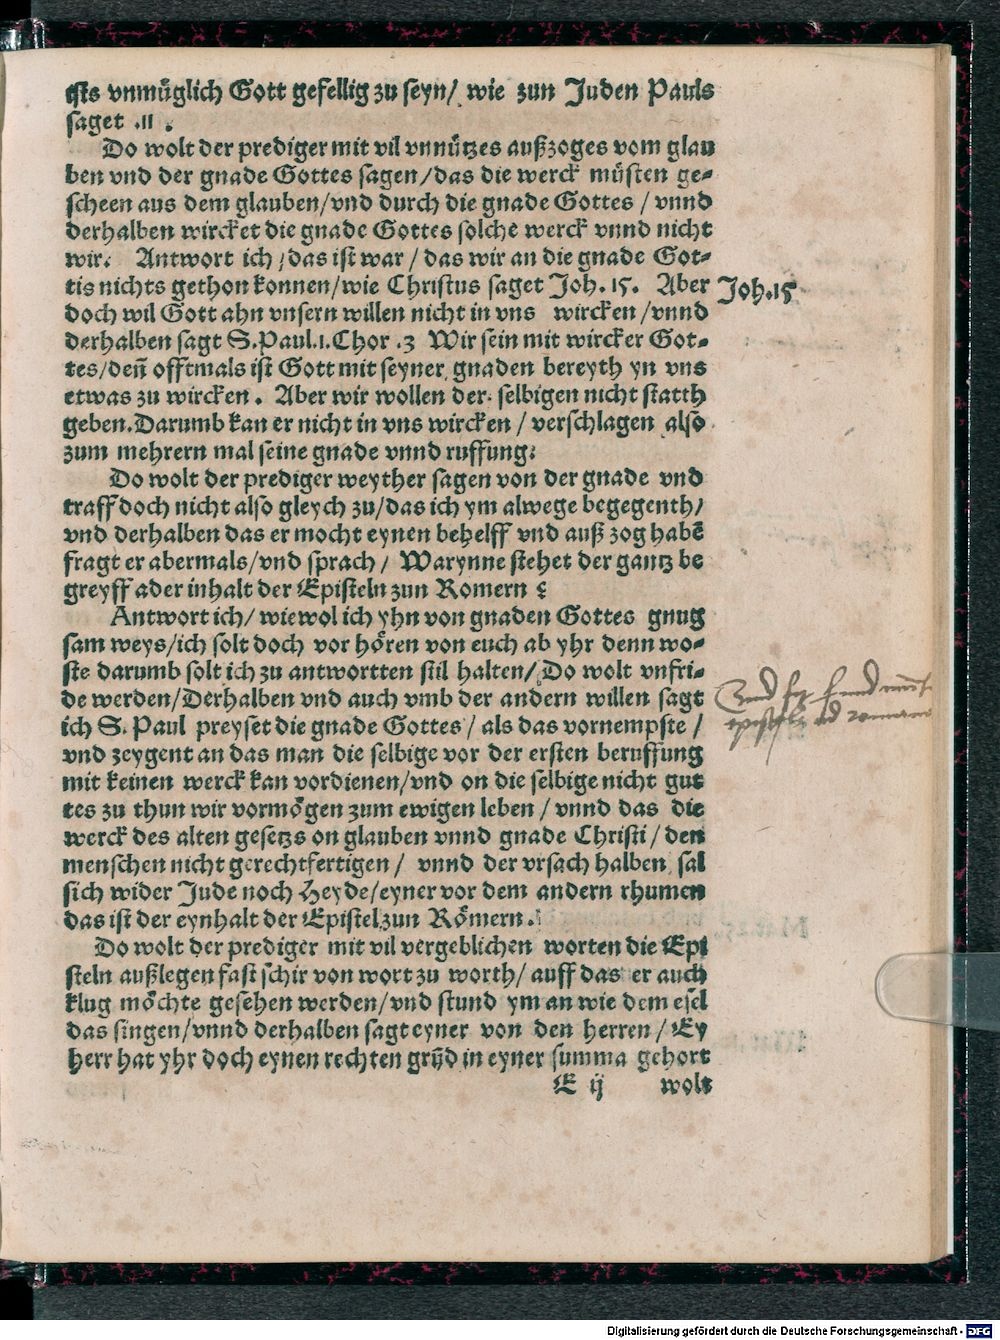 ists vnmüglich Gott gefellig zu seyn/ wie zun Juden Pauls
saget .11 .
Do wolt der prediger mit vil vnnützes außzoges vom glau
ben vnd der gnade Gottes sagen/das die werck müsten ge⸗
scheen aus dem glauben/vnd durch die gnade Gottes / vnnd
derhalben wircket die gnade Gottes solche werck vnnd nicht
wir. Antwort ich /das ist war / das wir an die gnade Got⸗
tis nichts gethon konnen/wie Christus saget Joh. 15. Aber
Joh.15
doch wil Gott ahn vnsern willen nicht in vns wircken /vnnd
derhalben sagt S.Paul.1.Chor .3 Wir sein mit wircker Got⸗
tes/deñ offtmals ist Gott mit seyner gnaden bereyth yn vns
etwas zu wircken. Aber wir wollen der selbigen nicht statth
geben.Darumb kan er nicht in vns wircken / verschlagen also
zum mehrern mal seine gnade vnnd ruffung.
Do wolt der prediger weyther sagen von der gnade vnd
traff doch nicht also gleych zu/das ich ym alwege begegenth/
vnd derhalben das er mocht eynen behelff vnd auß zog habē
fragt er abermals/vnd sprach/ Warynne stehet der gantz be
greyff ader inhalt der Episteln zun Romern ?
Antwort ich/ wiewol ich yhn von gnaden Gottes gnug
sam weys/ich solt doch vor hören von euch ab yhr denn wo⸗
ste darumb solt ich zu antwortten stil halten/ Do wolt vnfri⸗
de werden/Derhalben vnd auch vmb der andern willen sagt
ich S. Paul preyset die gnade Gottes/ als das vornempste /
vnd zeygent an das man die selbige vor der ersten beruffung
mit keinen werck kan vordienen/vnd on die selbige nicht gut
tes zu thun wir vormögen zum ewigen leben / vnnd das die
werck des alten gesetzs on glauben vnnd gnade Christi/ den
menschen nicht gerechtfertigen / vnnd der vrsach halben sal
sich wider Jude noch Heyde/eyner vor dem andern rhumen
das ist der eynhalt der Epistel zun Römern.
Do wolt der prediger mit vil vergeblichen worten die Epi
steln außlegen fast schir von wort zu worth/ auff das er auch
klug möchte gesehen werden/vnd stund ym an wie dem esel
das singen/vnnd derhalben sagt eyner von den herren/ Ey
herr hat yhr doch eynen rechten grūd in eyner summa gehort
E ij wolt
Digitalisierung gefördert durch die Deutsche Forschungsgemeinschaft - DFG